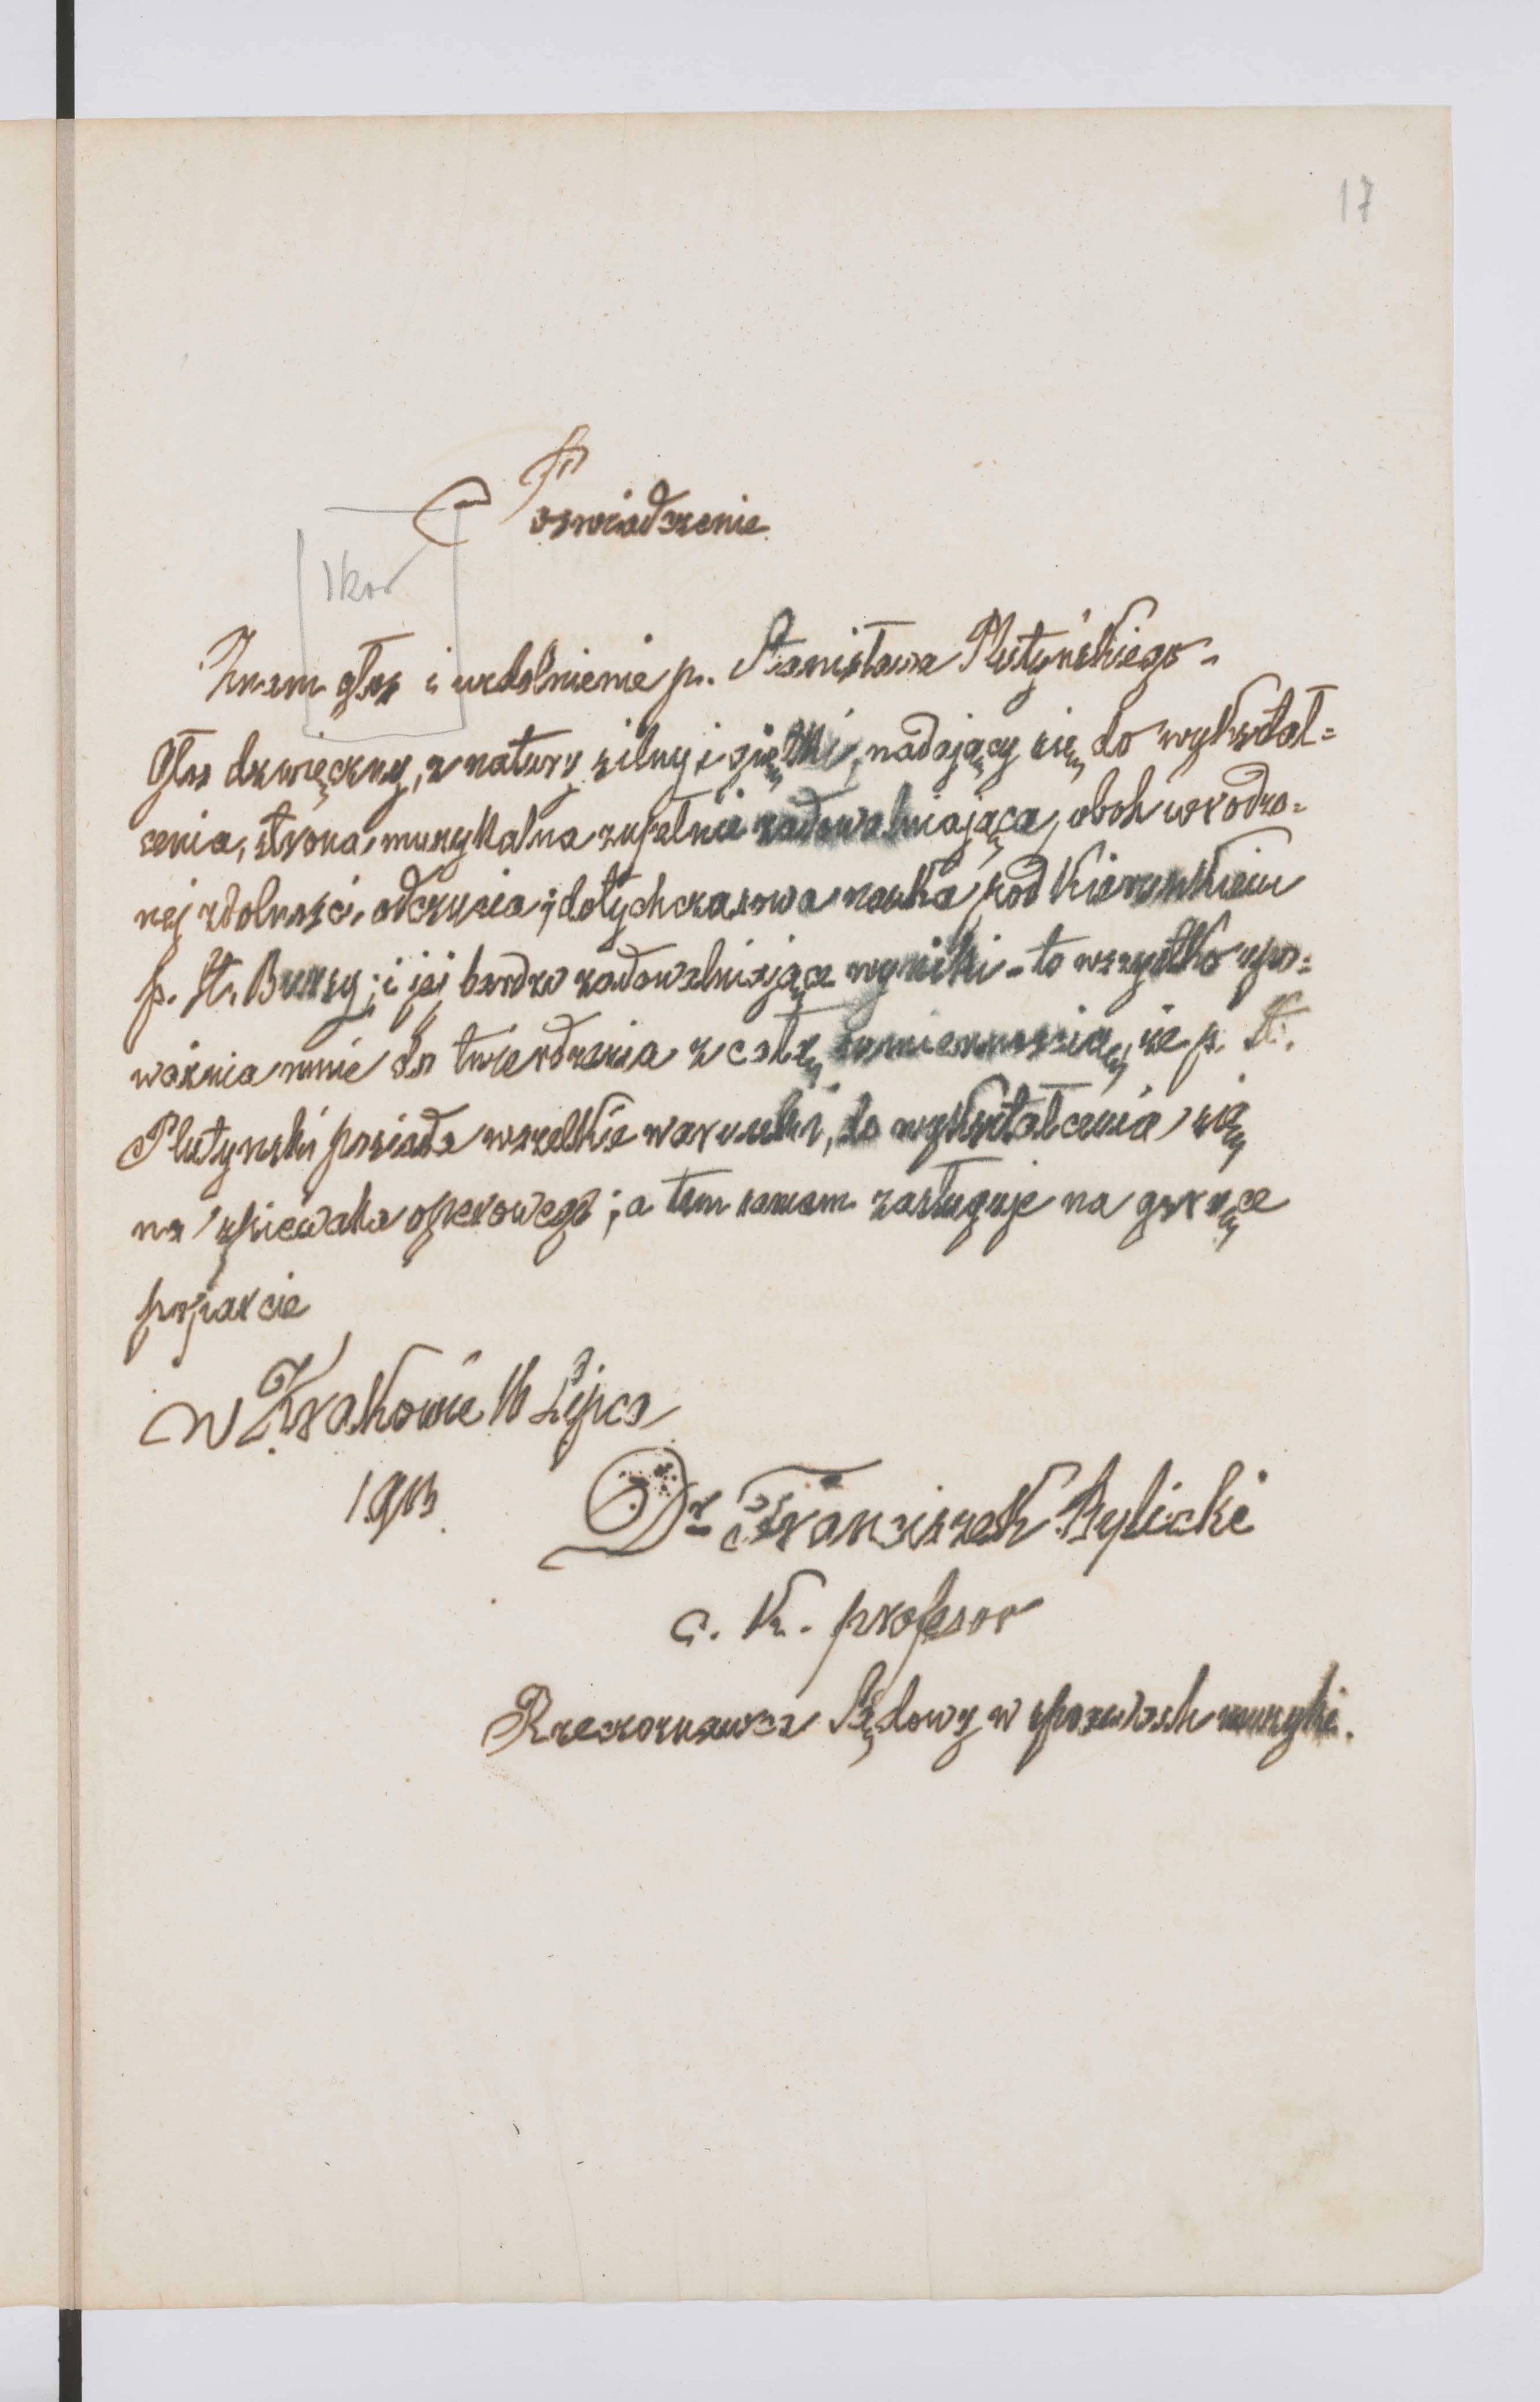 17
Poświadczenie
1 kor
Znam głos i uzdolnienie p. Stanisława Plutyńskiego.
Głos dzwięczny, z natury silny i giętki, nadający się do wykształ=
cenia, strona muzykalna zupełnie zadowalniająca, obok wrodzo=
nej zdolności odczucia; dotychczasowa nauka pod kierunkiem
p. St. Bursy; i jej bardzo zadowalniające wyniki - to wszystko upo=
ważnia mnie do twierdzenia z całą sumiennością, że p. St.
Plutynski posiada wszelkie warunki, do wykształcenia się
na śpiewaka operowego; a tem samem zasługuje na gorące
poparcie
W Krakowie 16 Lipca
1913
Dr Franciszek Bylicki
c. k. profesor
Rzeczoznawca Sądowy w sprawach muzyki.